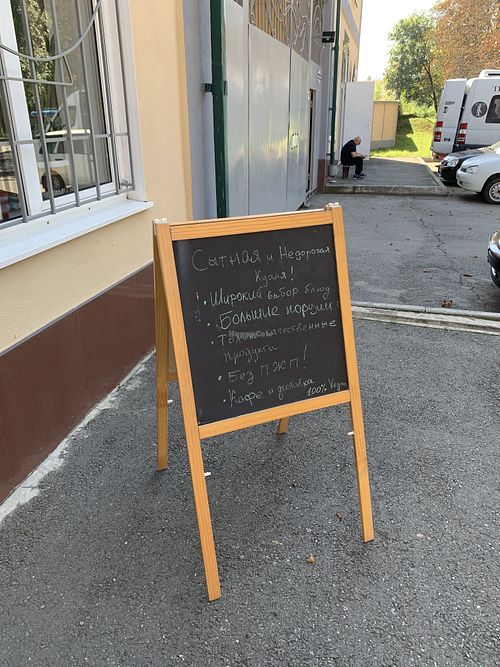 Сытная и Недорогая
Кухня!
• Широкий выбор блюд
• Большие порции
• Только качественные
продукты
• Без ПЖП!
• Кафе и доставка
100% Vegan
HappyCow